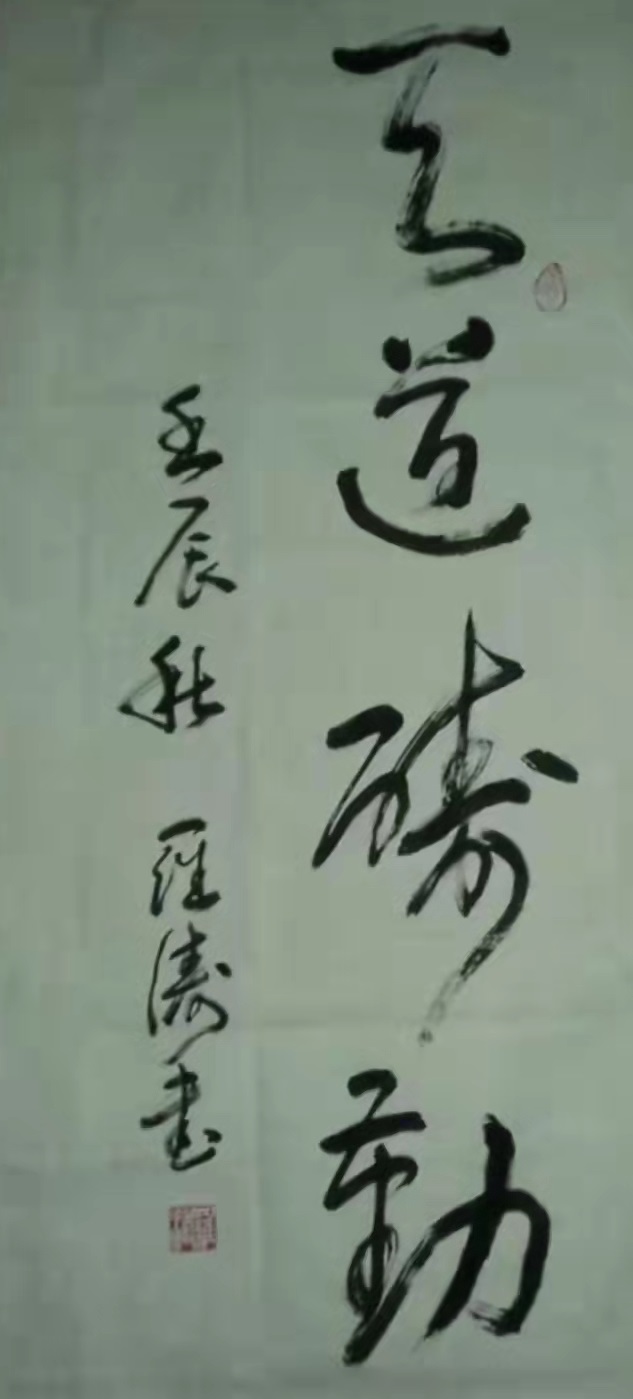 天道酬勤
壬辰秋 羅濤書